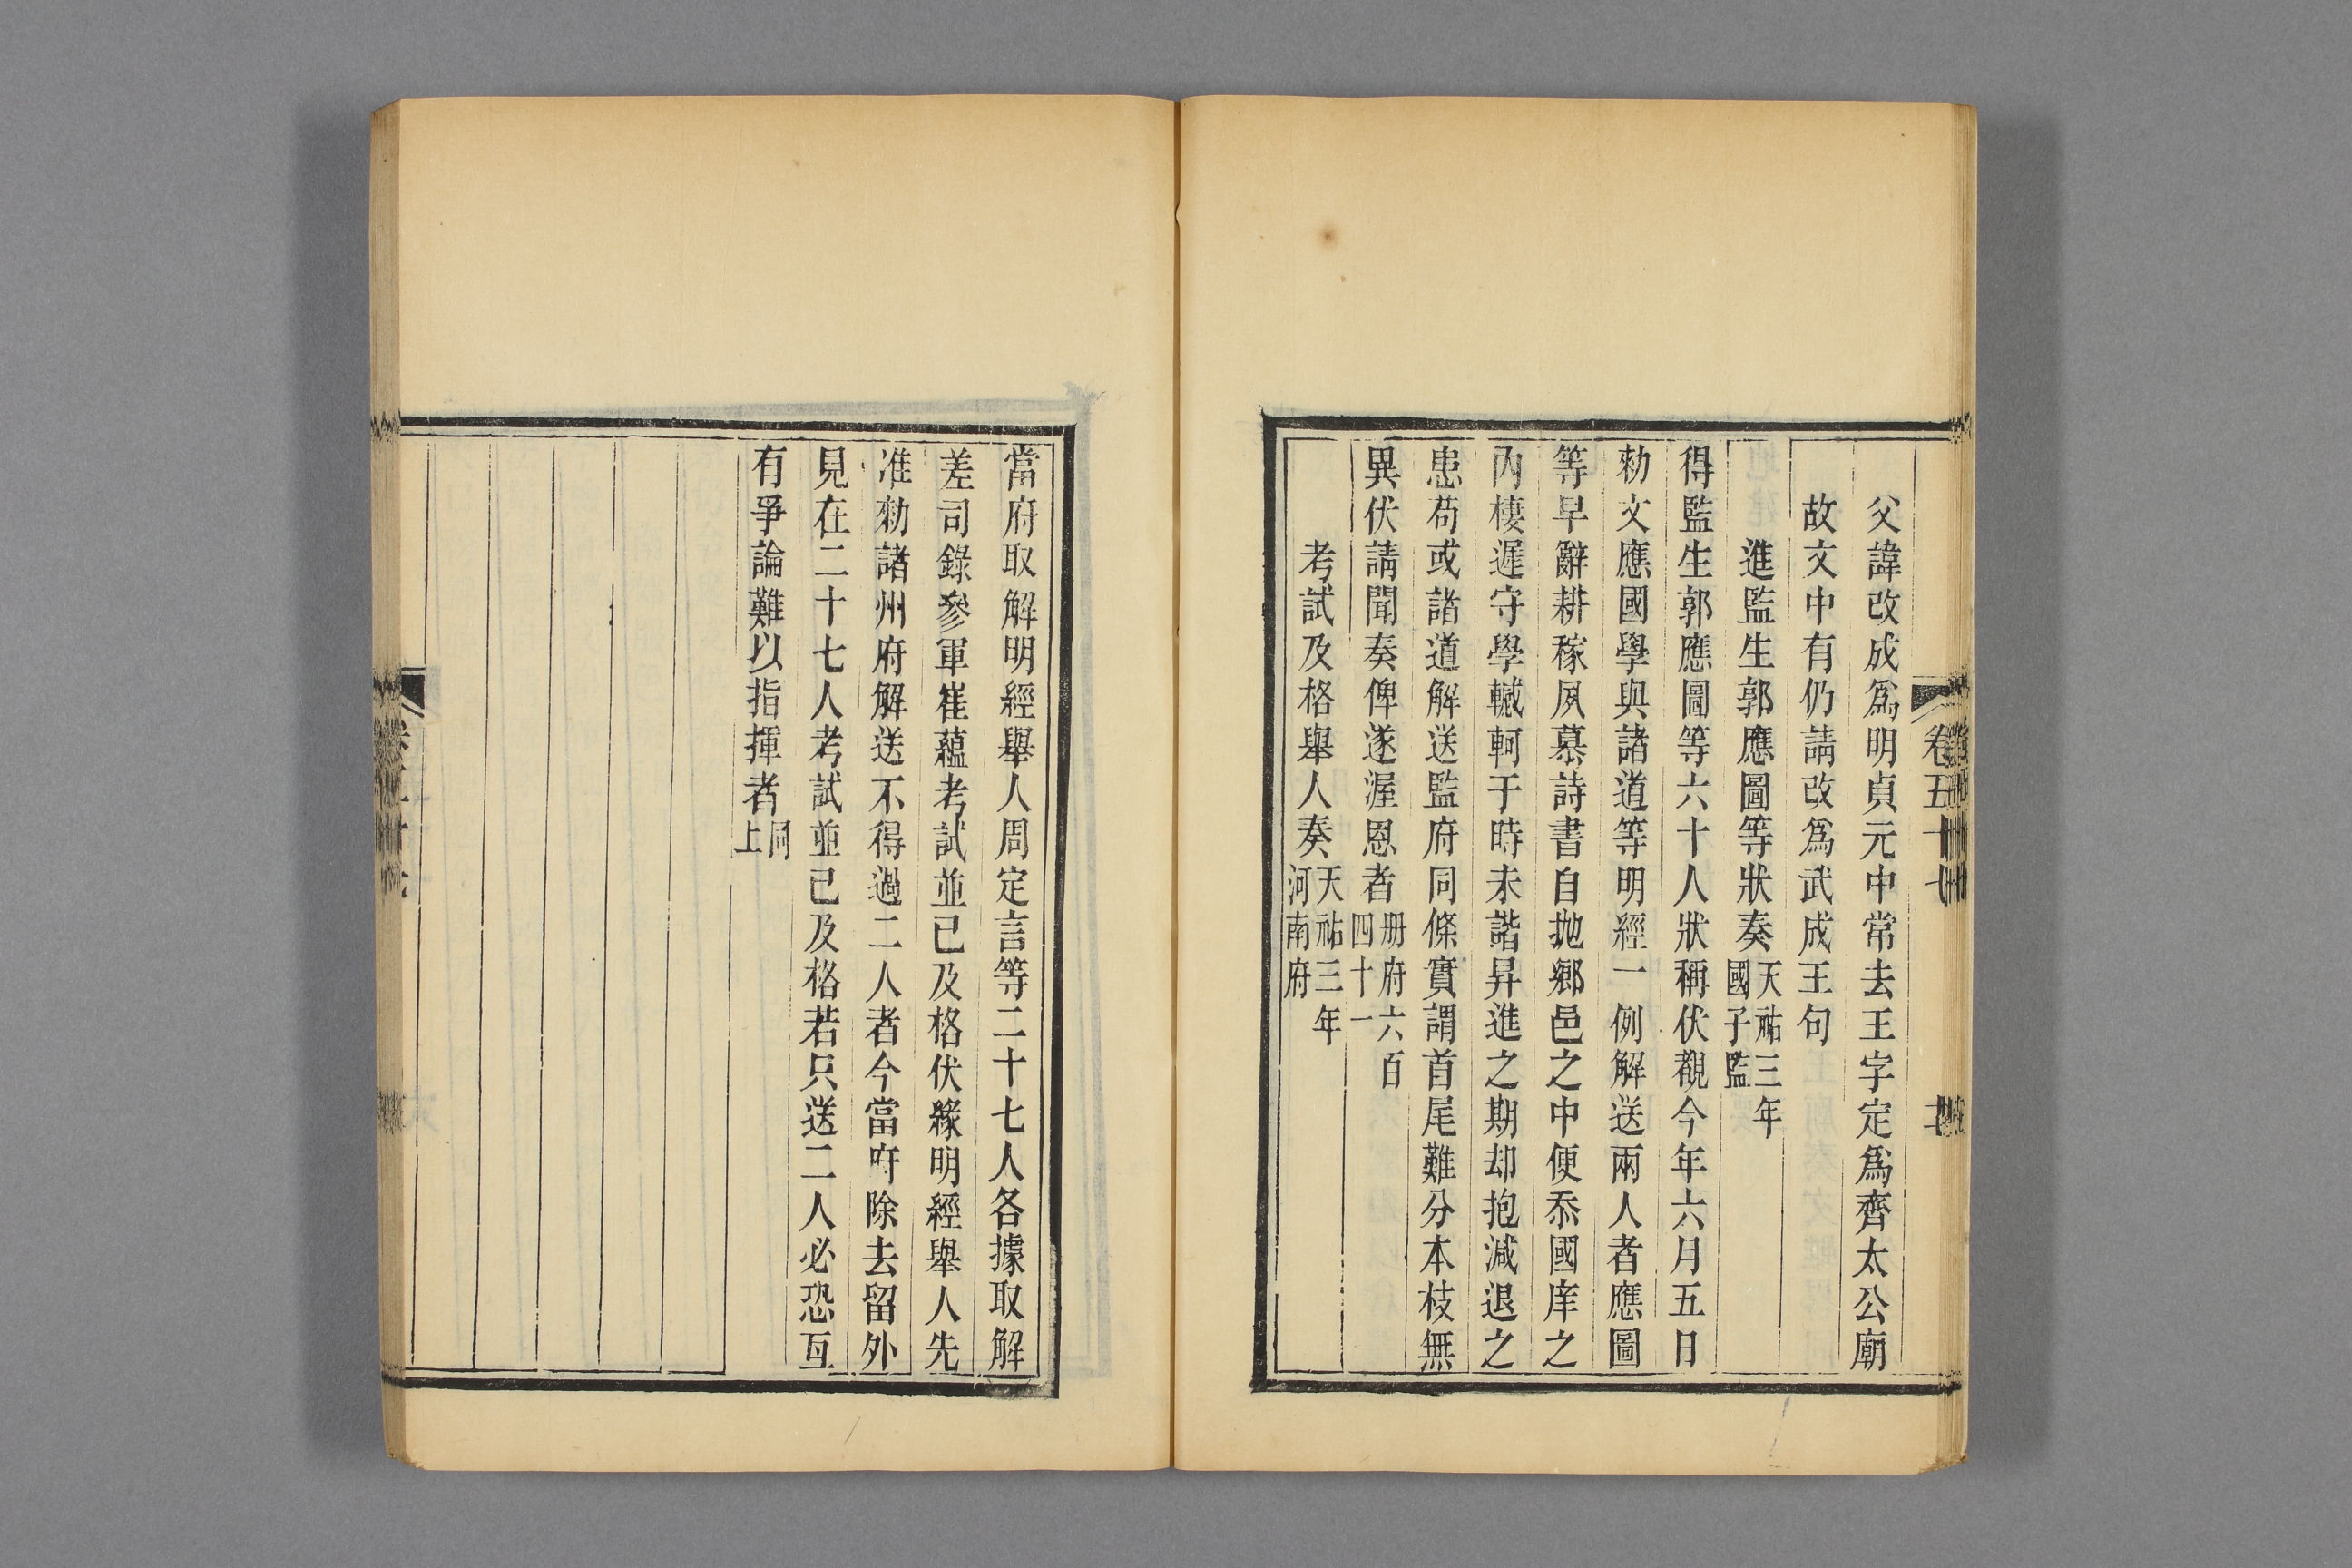 父諱改成爲明貞元中常去王字定爲齊太公廟
故文中有仍請改爲武成王句
進監生郭應圖等狀奏天祐三年國子監
得監生郭應圖等六十人狀稱伏覩今年六月五日
勑文應國學與諸道等明經一例解送兩人者應圖
等早辭耕稼夙慕詩書自抛鄉邑之中便忝國庠之
內棲遲守學轗軻于時未諧昇進之期却抱減退之
患苟或諸道解送監府同條實謂首尾難分本枝無
異伏請聞奏俾遂渥恩者册府六百四十一
考試及格舉人奏天祐三年河南府
當府取解明經舉人周定言等二十七人各據取解
差司錄參軍崔蘊考試並已及格伏緣明經舉人先
准勑諸州府解送不得過二人者今當府除去留外
見在二十七人考試並已及格若只送二人必恐互
有爭論難以指揮者同上